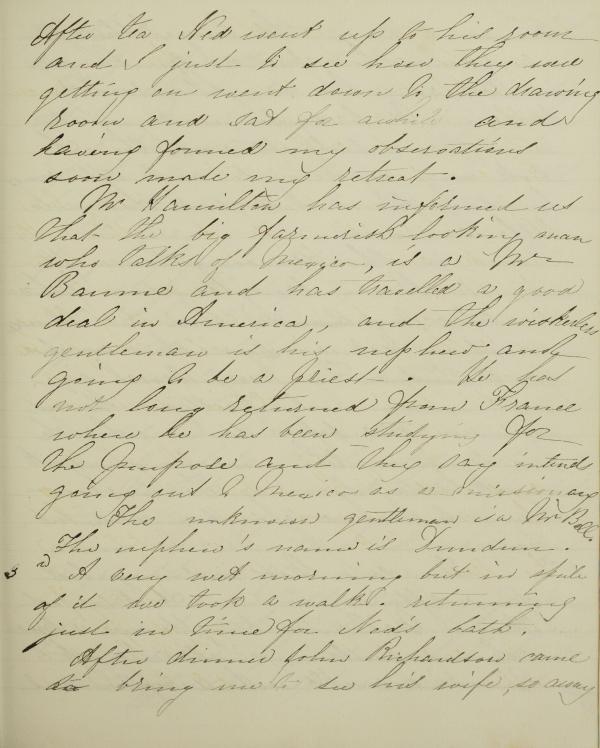 After tea Ned went up to his room
and I just to see how they were
getting on went down to the drawing
room and sat for awhile and
having formed my observations
soon made my retreat.
Mr Hamilton has informed us
that the big farmerish looking man
who talks of Mexico, is a Mr
Baume and has travelled a good
deal in America, and the whiskerless
gentleman is his nephew and
going to be a priest. He has
not long returned from France
where he has been studying for
the purpose and they say intends
going out to Mexico as a missionary
The unknown gentleman is a Mr Bell.
The nephew's name is
3rd A very wet morning but in spite
of it we took a walk. returning
just in time for Ned's bath.
After dinner John Richardson came
to bring me to see his wife, so away